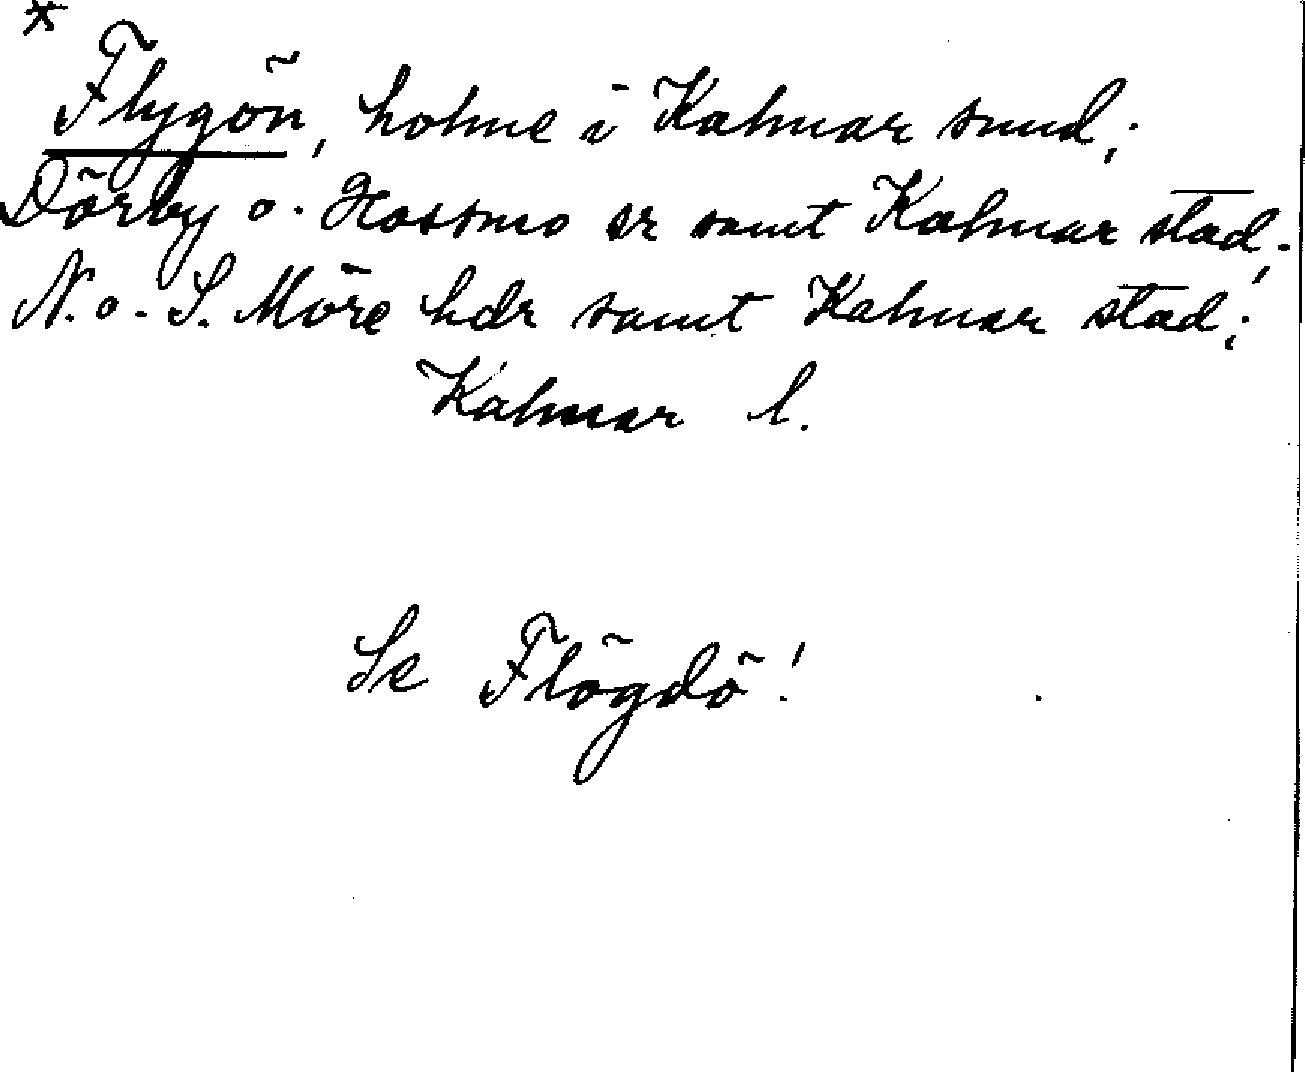 *
Flygön, holme i Kalmar sund;
Dörby o. Hossmo sr samt Kalmar stad;
N. o. S. Möre hdr samt Kalmar stad;
Kalmar l.
Se Flögdö!